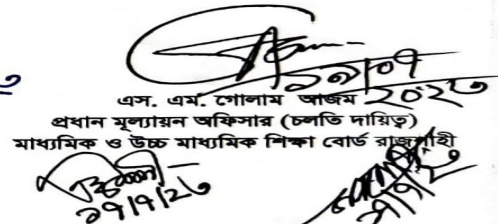 এস. এম. গোলাম আজম
২০২৩
প্রধান মূল্যায়ন অফিসার (চলতি দায়িত্ব)
মাধ্যমিক ও উচ্চ মাধ্যমিক শিক্ষা বোর্ড রাজশাহী
১৭/৭/২৩